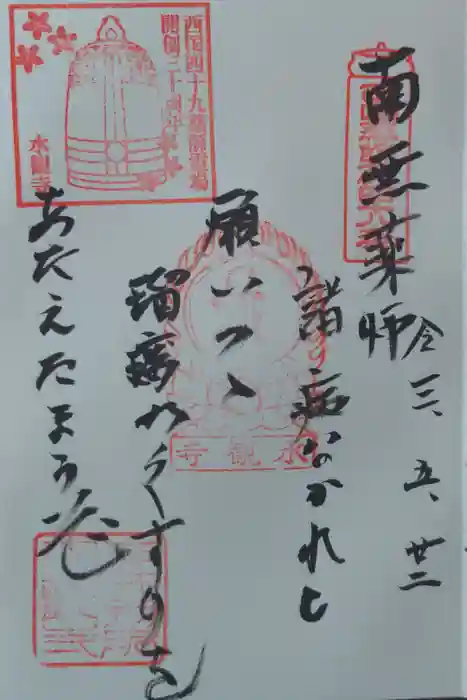 西国四十九薬師霊場
開創三十周年
水観寺
南無薬師
令三、五、廿二
諸病なかれと
願いつゝ
瑠璃のくすりを
あたえたまう
水観寺